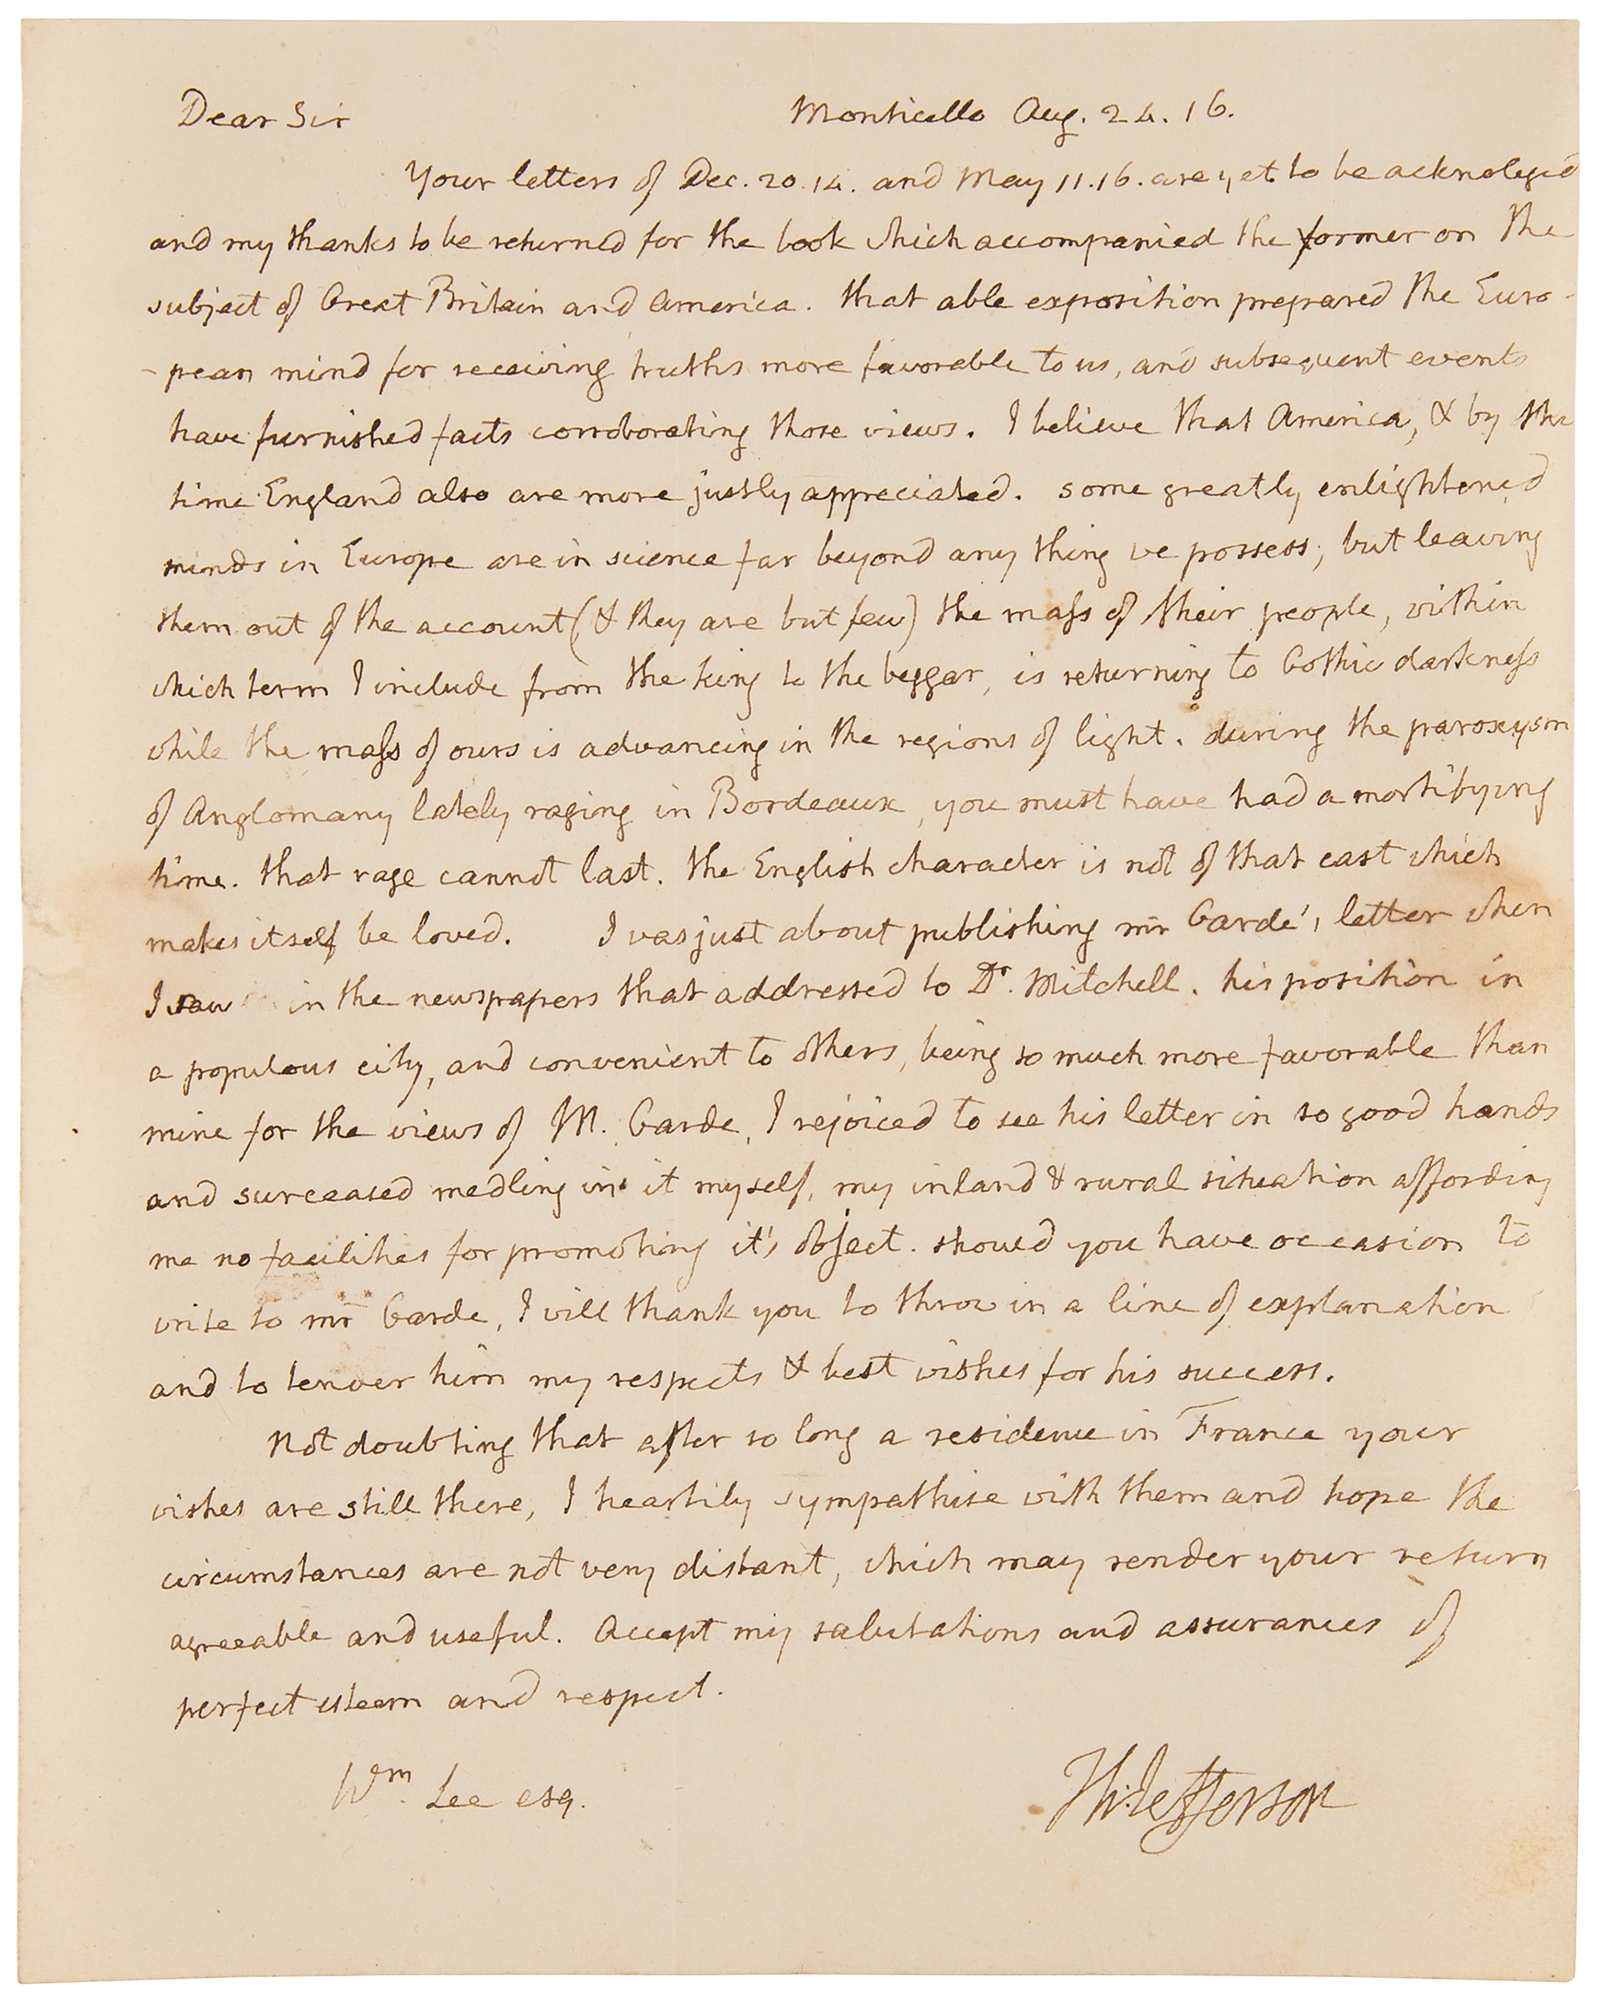 Dear Sir Monticello Aug. 24. 16.
Your letters of Dec. 20. 14. and May 11. 16. are yet to be acknoleged
and my thanks to be returned for the book which accompanied the former on the
subject of Great Britain and America. that able exposition prepared the Euro-
-pean mind for recieving truths more favorable to us, and subsequent events
have furnished facts corroborating those views. I believe that America, & by this
time England also are more justly appreciated. some greatly enlightened
minds in Europe are in science far beyond any thing we possess; but leaving
them out of the account (& they are but few) the mass of their people, within
which term I include from the king to the beggar, is returning to Gothic darkness
while the mass of ours is advancing in the regions of light. during the paroxysm
of Anglomany lately raging in Bordeaux, you must have had a mortifying
time. that rage cannot last. the English character is not of that cast which
makes itself be loved. I was just about publishing mr Garde's letter when
I saw in the newspapers that addressed to Dr. Mitchell. his position in
a populous city, and convenient to others, being so much more favorable than
mine for the views of M. Garde, I rejoiced to see his letter in so good hands
and surceased medling in it myself, my inland & rural situation affording
me no facilities for promoting it's object. should you have occasion to
write to mr Garde, I will thank you to throw in a line of explanation
and to tender him my respects & best wishes for his success.
Not doubting that after so long a residence in France your
wishes are still there, I heartily sympathise with them and hope the
circumstances are not very distant, which may render your return
agreeable and useful. Accept my salutations and assurances of
perfect esteem and respect.
Wm. Lee esq. Th: Jefferson